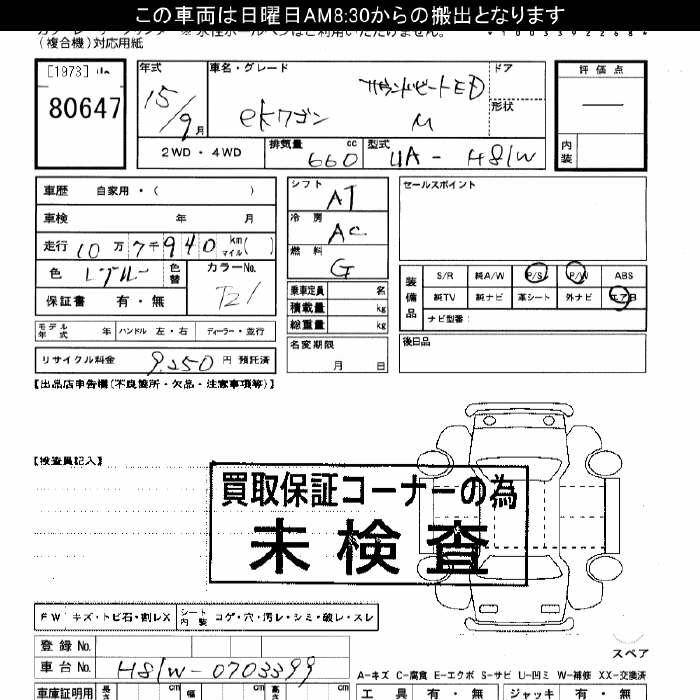 この車両は日曜日AM8:30からの搬出となります
(複合機)対応用紙
[1973]
80647
年式 車名・グレード ドア 評価点
15/9月 ekワゴン サウンドビートED M 形状 —
2WD・4WD 排気量 660 cc 型式 UA-H81W 内装
車歴 自家用・( )
車検 年 月
走行 10万7千940 km マイル( )
色 色替 カラーNo.
保証書 有・無 T21
モデル年式 年 ハンドル 左・右 ディーラー・並行
リサイクル料金 9,250 円 預託済
シフト AT
冷房 AC
燃料 G
乗車定員 名
積載量 kg
総重量 kg
名変期限 月 日
セールスポイント
装備品 S/R 純A/W P/S P/W ABS
純TV 純ナビ 革シート 外ナビ エアB
ナビ型番:
後日品
【出品店申告欄(不良箇所・欠品・注意事項等)】
【検査員記入】
買取保証コーナーの為
未検査
FW キズ・トビ石・割レX シート内装 コゲ・穴・汚レ・シミ・破レ・スレ
スペア
登録No.
車台No. H81W-0703399
A-キズ C-腐食 E-エクボ S-サビ U-凹ミ W-補修 XX-交換済
車庫証明用 長さ cm 幅 cm cm
工具 有・無 ジャッキ 有・無